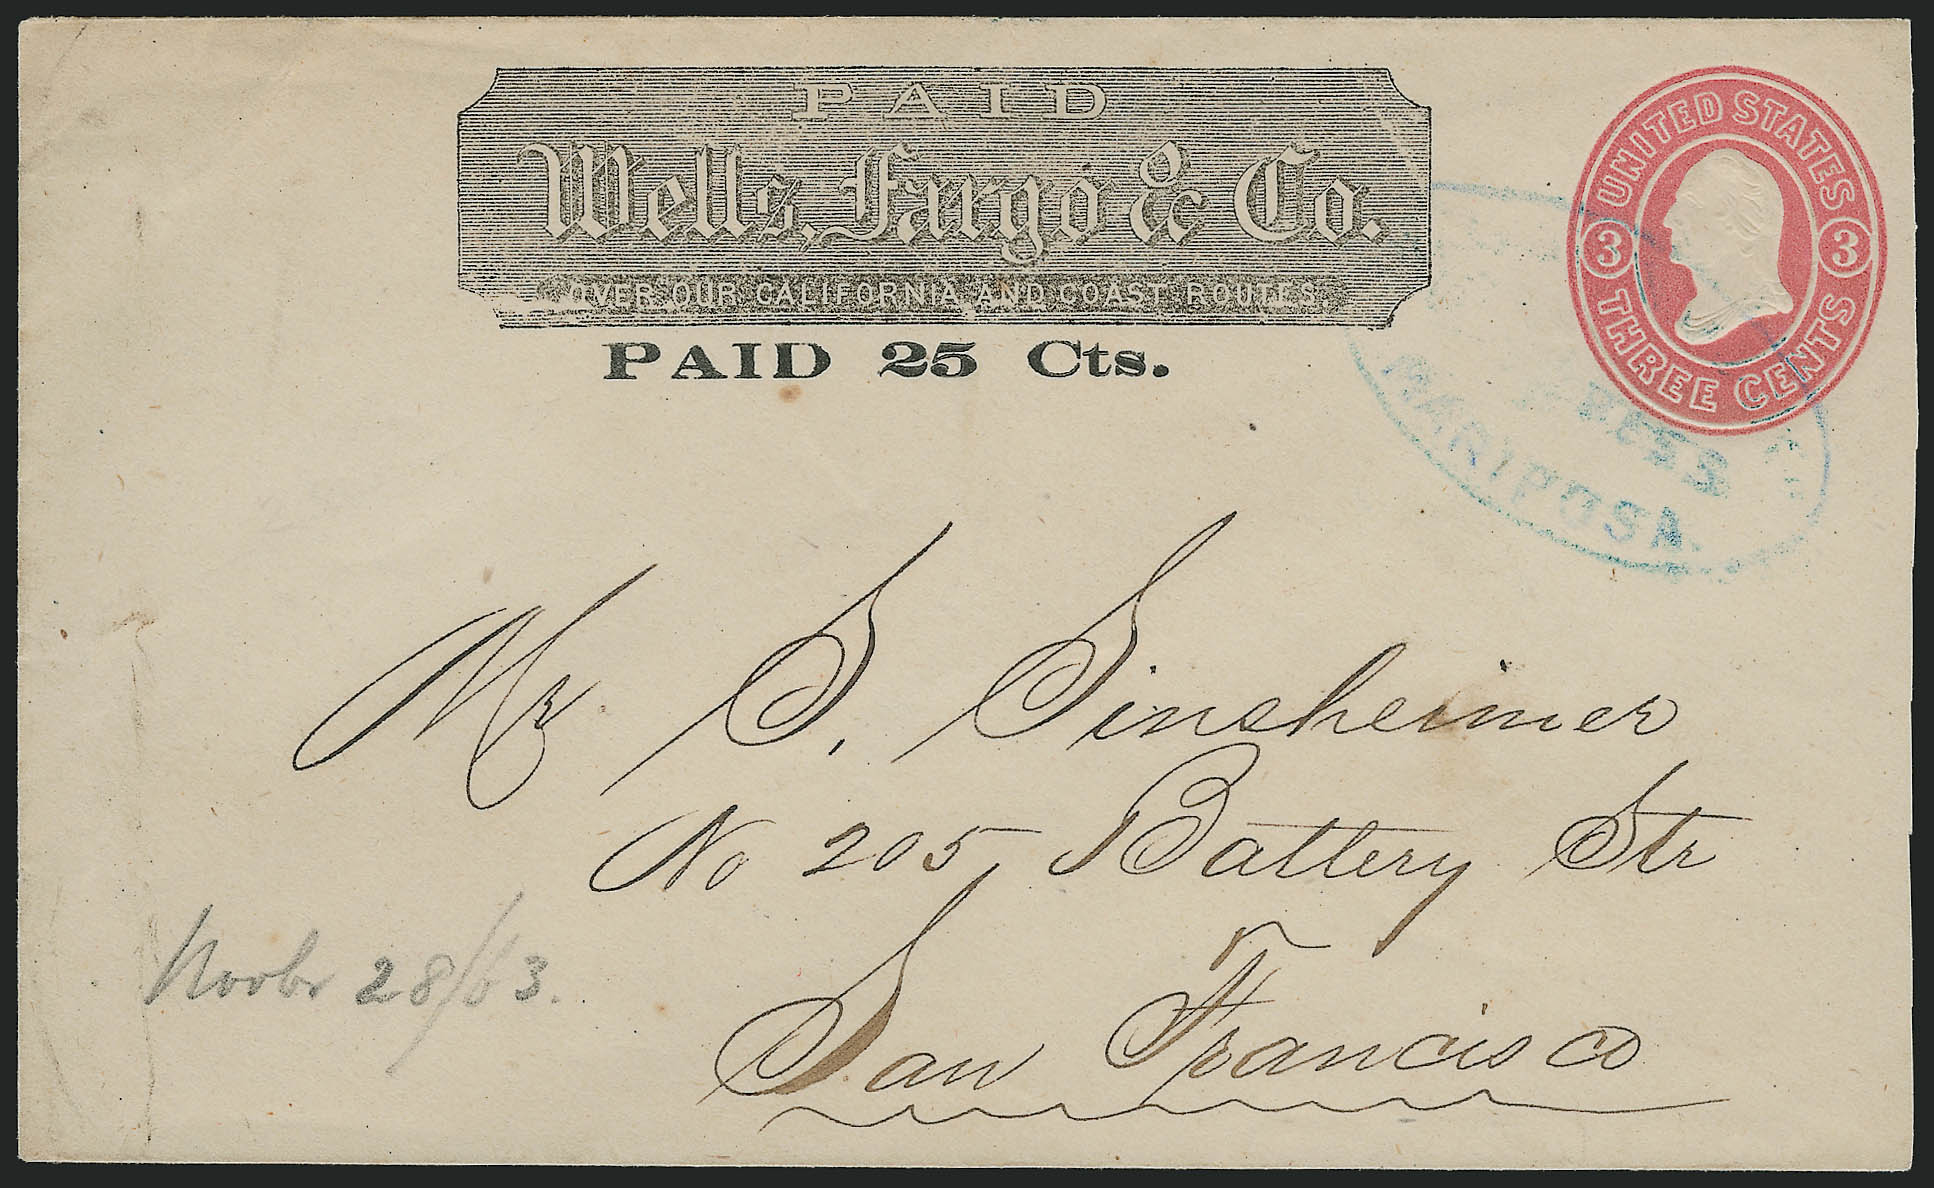 PAID
Wells, Fargo & Co.
OVER OUR CALIFORNIA AND COAST ROUTES.
PAID 25 Cts.
UNITED STATES
3 3
THREE CENTS
MARIPOSA.
Mr S. Sinsheimer
No 205, Battery Str
San Francisco
Novbr 28/63.